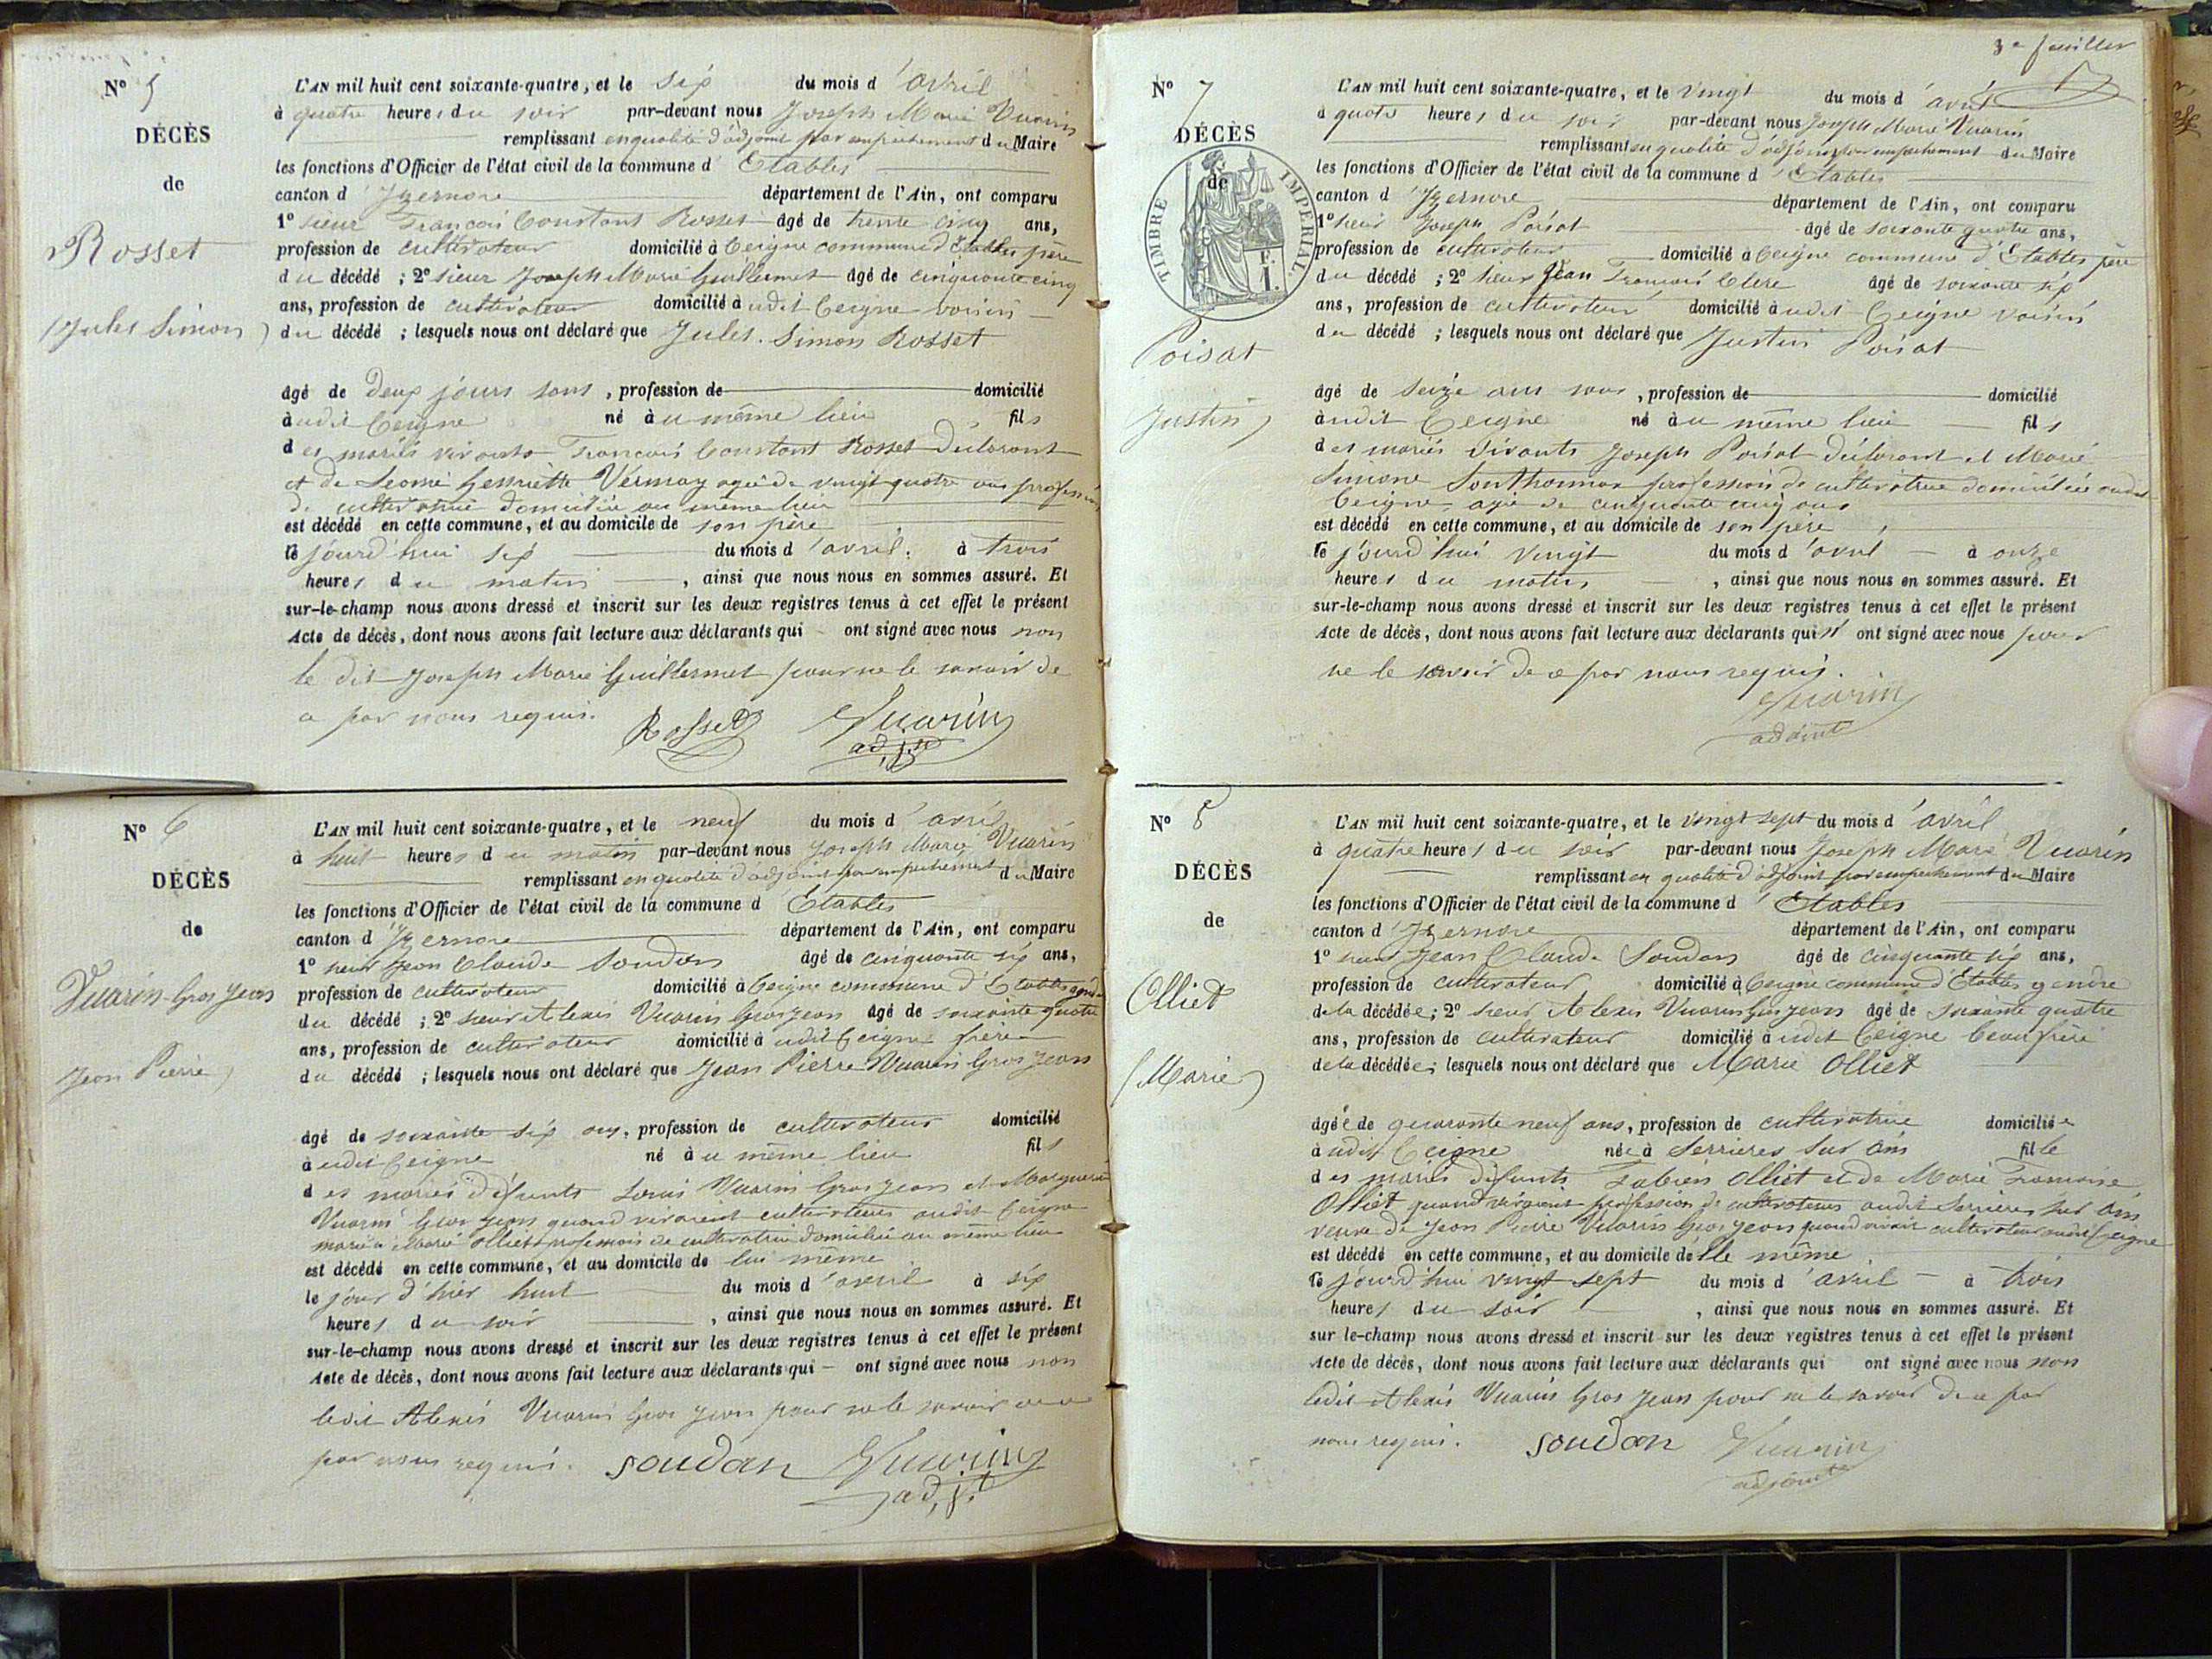 N° 5
DÉCÈS
de
Rosset
(Jules Simon)
L'AN mil huit cent soixante-quatre, et le six du mois d'avril
à quatre heures du soir par-devant nous Joseph Marie Vuarin
remplissant en qualité d'adjoint par empêchement du Maire
les fonctions d'Officier de l'état civil de la commune d'Etables
canton d'Izernore département de l'Ain, ont comparu
1° sieur François Constant Rosset âgé de trente cinq ans,
profession de cultivateur domicilié à Ceigne commune d'Etables père
du décédé ; 2° sieur Joseph Marie Guillermet âgé de cinquante cinq
ans, profession de cultivateur domicilié à udit Ceigne voisin
du décédé ; lesquels nous ont déclaré que Jules Simon Rosset
âgé de deux jours sans, profession de domicilié
à udit Ceigne né à u même lieu fils
des mariés vivants François Constant Rosset déclarant
et de Leonie Henriette Vermay agée de vingt quatre ans profession
de cultivatrice domiciliée au même lieu
est décédé en cette commune, et au domicile de son père
le jourd'hui six du mois d'avril, à trois
heures du matin, ainsi que nous nous en sommes assuré. Et
sur-le-champ nous avons dressé et inscrit sur les deux registres tenus à cet effet le présent
Acte de décès, dont nous avons fait lecture aux déclarants qui ont signé avec nous non
le dit Joseph Marie Guillermet pour ne le savoir de
ce par nous requis. Rosset Vuarin
adjt
N° 6
DÉCÈS
de
Vuarin-Gros Jean
Jean Pierre)
L'AN mil huit cent soixante-quatre, et le neuf du mois d'avril
à huit heures du matin par-devant nous Joseph Marie Vuarin
remplissant en qualité d'adjoint par empêchement du Maire
les fonctions d'Officier de l'état civil de la commune d'Etables
canton d'Izernore département de l'Ain, ont comparu
1° sieur Jean Claude Soudan âgé de cinquante six ans,
profession de cultivateur domicilié à Ceigne commune d'Etables gendre
du décédé ; 2° sieur Alexis Vuarin Gros Jean âgé de soixante quatre
ans, profession de cultivateur domicilié à udit Ceigne frère
du décédé ; lesquels nous ont déclaré que Jean Pierre Vuarin Gros Jean
âgé de soixante six ans, profession de cultivateur domicilié
à udit Ceigne né à u même lieu fils
des mariés défunts Louis Vuarin Gros Jean et Marguerite
Vuarin Gros Jean quand vivaient cultivateurs audit Ceigne
marié à Marie Olliet profession de cultivatrice domiciliée au même lieu
est décédé en cette commune, et au domicile de lui même
le jour d'hier huit du mois d'avril à six
heures du soir, ainsi que nous nous en sommes assuré. Et
sur-le-champ nous avons dressé et inscrit sur les deux registres tenus à cet effet le présent
Acte de décès, dont nous avons fait lecture aux déclarants qui ont signé avec nous non
ledit Alexis Vuarin Gros Jean pour ne le savoir de ce
par nous requis. soudan Vuarin
adjt
3e feuillet
N° 7
DÉCÈS
de
TIMBRE IMPÉRIAL
Poisat
Justin)
L'AN mil huit cent soixante-quatre, et le vingt du mois d'avril
à quatre heures du soir par-devant nous Joseph Marie Vuarin
remplissant en qualité d'adjoint par empêchement du Maire
les fonctions d'Officier de l'état civil de la commune d'Etables
canton d'Izernore département de l'Ain, ont comparu
1° sieur Joseph Poisat âgé de soixante quatre ans,
profession de cultivateur domicilié à Ceigne commune d'Etables père
du décédé ; 2° sieur Jean François Clerc âgé de soixante six
ans, profession de cultivateur domicilié à udit Ceigne voisin
du décédé ; lesquels nous ont déclaré que Justin Poisat
âgé de seize ans sans, profession de domicilié
à udit Ceigne né à u même lieu fils
des mariés vivants Joseph Poisat déclarant et Marie
Simone Sonthonnax profession de cultivatrice domiciliée audit
Ceigne agée de cinquante cinq ans
est décédé en cette commune, et au domicile de son père,
le jourd'hui vingt du mois d'avril à onze
heures du matin, ainsi que nous nous en sommes assuré. Et
sur-le-champ nous avons dressé et inscrit sur les deux registres tenus à cet effet le présent
Acte de décès, dont nous avons fait lecture aux déclarants qui n'ont signé avec nous pour
ne le savoir de ce par nous requis.
Vuarin
adjoint
N° 8
DÉCÈS
de
Olliet
(Marie)
L'AN mil huit cent soixante-quatre, et le vingt sept du mois d'avril
à quatre heures du soir par-devant nous Joseph Marie Vuarin
remplissant en qualité d'adjoint par empêchement du Maire
les fonctions d'Officier de l'état civil de la commune d'Etables
canton d'Izernore département de l'Ain, ont comparu
1° sieur Jean Claude Soudan âgé de cinquante six ans,
profession de cultivateur domicilié à Ceigne commune d'Etables gendre
de la décédée ; 2° sieur Alexis Vuarin Gros Jean âgé de soixante quatre
ans, profession de cultivateur domicilié à udit Ceigne beau frère
de la décédée ; lesquels nous ont déclaré que Marie Olliet
âgée de quarante neuf ans, profession de cultivatrice domiciliée
à udit Ceigne née à Serrières sur Ain fille
des mariés défunts Fabien Olliet et de Marie Françoise
Olliet quand vivaient profession de cultivateurs audit Serrières sur Ain
veuve de Jean Pierre Vuarin Gros Jean quand vivait cultivateur audit Ceigne
est décédé en cette commune, et au domicile de elle même
le jourd'hui vingt sept du mois d'avril à trois
heures du soir, ainsi que nous nous en sommes assuré. Et
sur le-champ nous avons dressé et inscrit sur les deux registres tenus à cet effet le présent
Acte de décès, dont nous avons fait lecture aux déclarants qui ont signé avec nous non
ledit Alexis Vuarin Gros Jean pour ne le savoir de ce par
nous requis. soudan Vuarin
adjoint